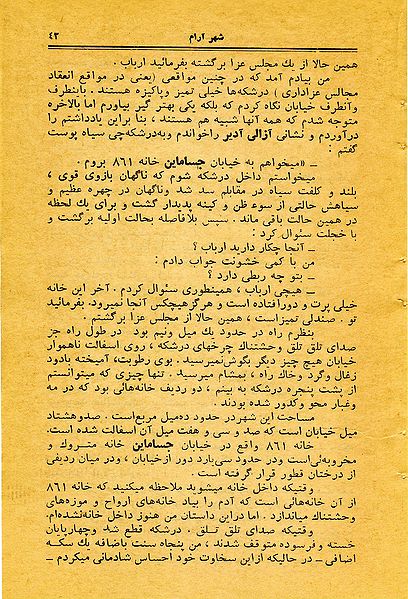 شهر آرام ۴۳
همین حالا از یك مجلس عزا برگشته بفرمائید ارباب .
من بیادم آمد که در چنین مواقعی (یعنی در مواقع انعقاد
مجالس عزاداری ) درشکه‌ها خیلی تمیز وپاکیزه هستند . باینطرف
وآنطرف خیابان نگاه کردم که بلکه یکی بهتر گیر بیاورم اما بالاخره
متوجه شدم که همه آنها شبیه هم هستند ، بنا براین یادداشتم را
درآوردم و نشانی آزالی آدیر راخواندم وبه‌درشکه‌چی سیاه پوست
گفتم :
ــ «میخواهم به خیابان جساماین خانه ۸۶۱ بروم .
میخواستم داخل درشکه شوم که ناگهان بازوی قوی ،
بلند و کلفت سیاه در مقابلم سد شد وناگهان در چهره عظیم و
سیاهش حالتی از سوء ظن و کینه پدیدار گشت و برای یك لحظه
در همین حالت باقی ماند . سپس بلافاصله بحالت اولیه برگشت و
با خجلت سئوال کرد :
ــ آنجا چکار دارید ارباب ؟
من با کمی خشونت جواب دادم :
ــ بتو چه ربطی دارد ؟
ــ هیچی ارباب ، همینطوری سئوال کردم . آخر این خانه
خیلی پرت و دورافتاده است و هرگزهیچکس آنجا نمیرود. بفرمائید
تو . صندلی تمیزاست ، همین حالا از مجلس عزا برگشتم .
بنظرم راه در حدود یك میل ونیم بود . در طول راه جز
صدای تلق تلق وحشتناك چرخهای درشکه ، روی اسفالت ناهموار
خیابان هیچ چیز دیگر بگوش‌نمیرسید . بوی رطوبت، آمیخته بادود
زغال وگرد وخاك راه ، بمشام میرسید . تنها چیزی که میتوانستم
از پشت پنجره درشکه به بینم ، دو ردیف خانه‌هائی بود که در مه
وغبار محو وکدور شده بودند .
مساحت این شهردر حدود ده‌میل مربع‌است . صدوهشتاد
میل خیابان است که صد و سی و هفت میل آن اسفالت شده است.
خانه ۸۶۱ واقع در خیابان جساماین خانه متروك و
مخروبه‌ئی‌است ودر حدود سی‌یارد دور ازخیابان ، ودر میان ردیفی
از درختان قطور قرار گرفته است .
وقتیکه داخل خانه میشوید ملاحظه میکنید که خانه ۸۶۱
از آن خانه‌هائی است که آدم را بیاد خانه‌های ارواح و موزه‌های
وحشتناك میاندازد . اما دراین داستان من هنوز داخل خانه‌نشده‌ام.
وقتیکه صدای تلق تلق . درشکه قطع شد وچهارپایان
خسته وفرسوده متوقف شدند ، من پنجاه سنت باضافه یك سکه
اضافی ــ در حالیکه ازاین سخاوت خود احساس شادمانی میکردم ــ